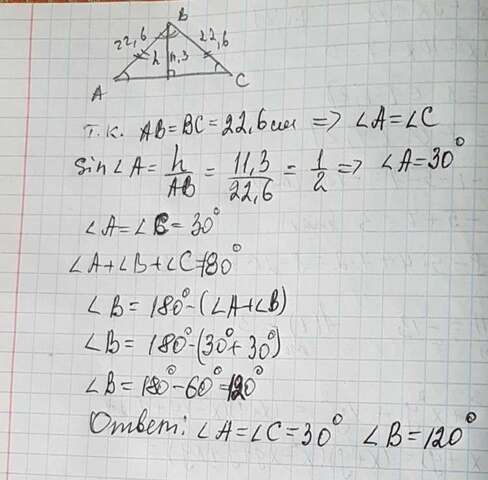 B
22,6 22,6
h 11,3
A C
т.к. AB=BC=22,6см => ∠A=∠C
Sin∠A= h/AB = 11,3/22,6 = 1/2 => ∠A=30°
∠A=∠C=30°
∠A+∠B+∠C=180°
∠B=180°-(∠A+∠B)
∠B=180°-(30°+30°)
∠B=180°-60°=120°
Ответ: ∠A=∠C=30° ∠B=120°